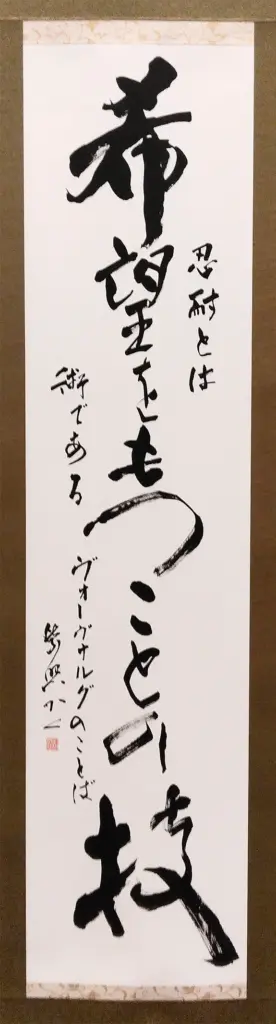 忍耐とは
希望をもつことの技
術である
ヴォーヴナルグのことば